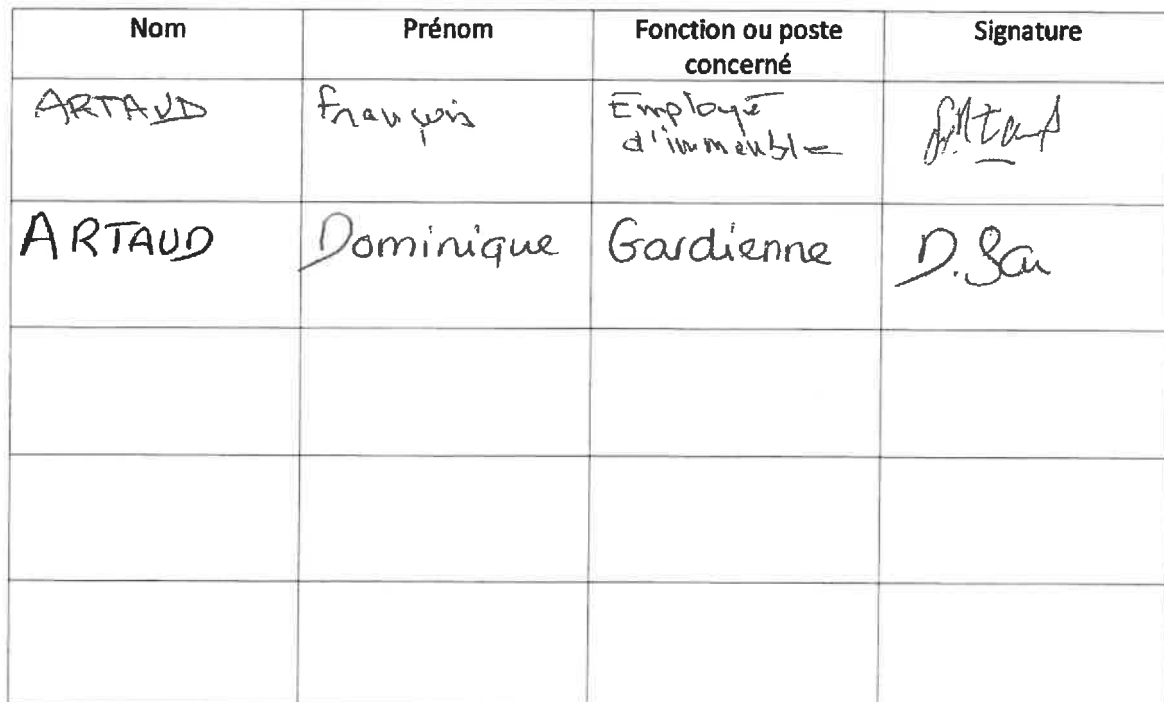 Nom Prénom Fonction ou poste concerné Signature
ARTAUD François Employé d'immeuble
ARTAUD Dominique Gardienne